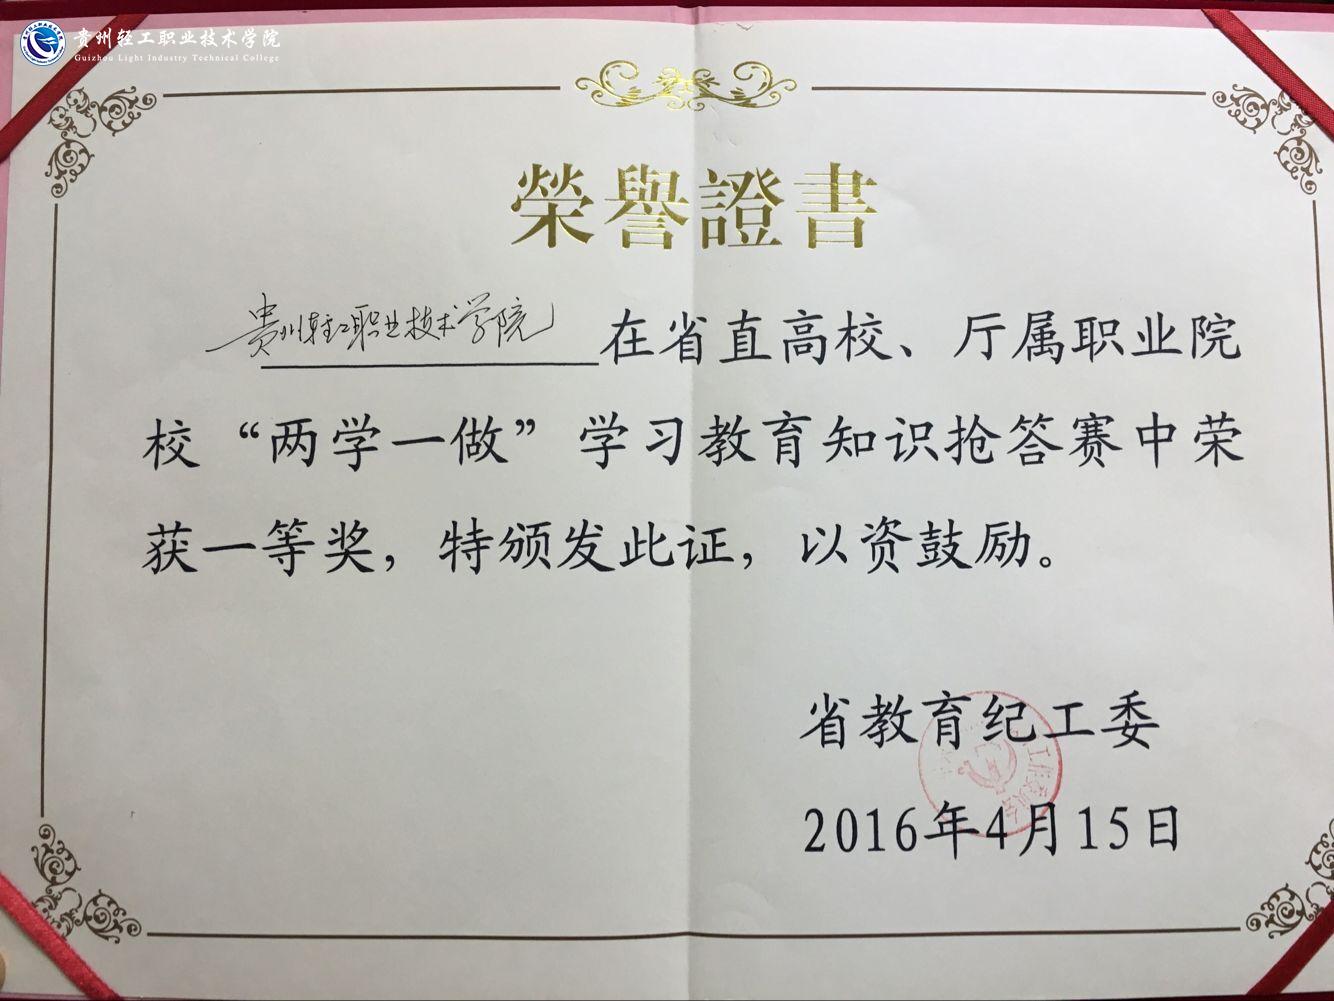 贵州轻工职业技术学院
Guizhou Light Industry Technical College
榮譽證書
贵州轻工职业技术学院在省直高校、厅属职业院
校“两学一做”学习教育知识抢答赛中荣
获一等奖，特颁发此证，以资鼓励。
省教育纪工委
2016年4月15日